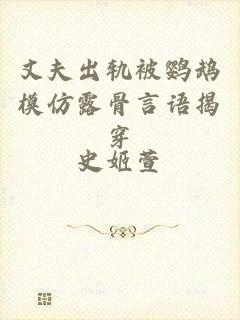 丈夫出轨被鹦鹉
模仿露骨言语揭
穿
史姬萱